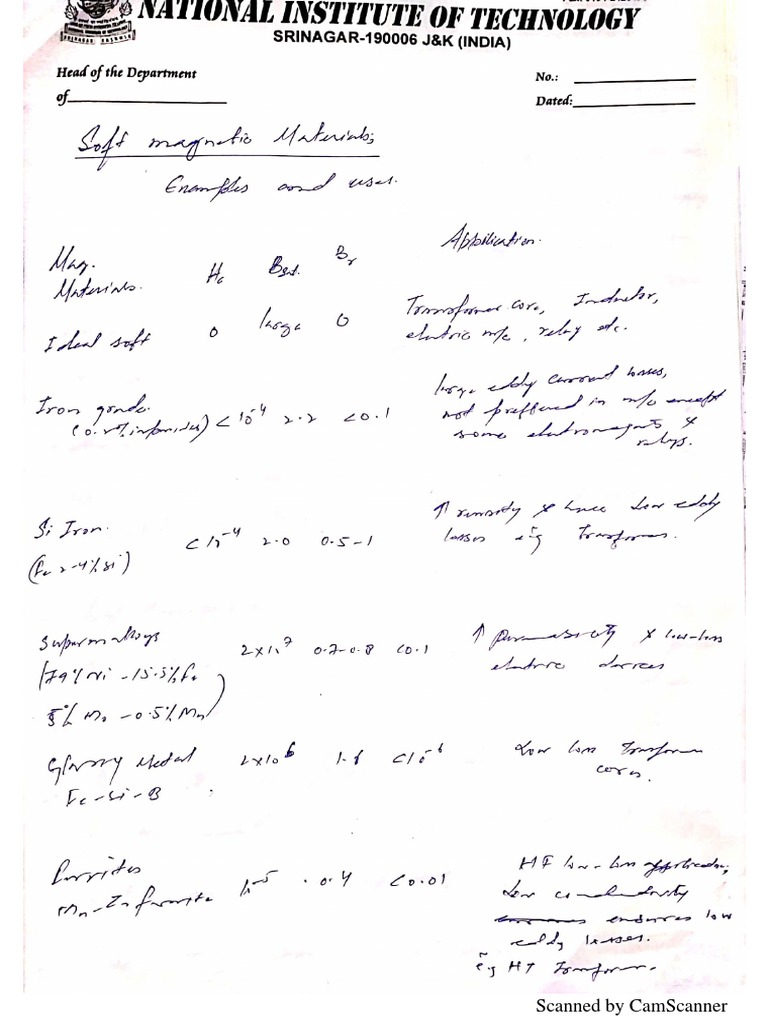 NATIONAL INSTITUTE OF TECHNOLOGY
SRINAGAR-190006 J&K (INDIA)
Head of the Department
of
No.:
Dated:
Soft magnetic Materials;
Examples and uses.
Mag. Materials. Hc Bsat. Br Application.
Ideal soft 0 large 0 Transformer core, Inductor,
electric m/c, relay etc.
Iron grade. large eddy current losses,
(0.2% impurities) <10⁻⁴ 2.2 <0.1 not preffered in m/c except
some electromagnets &
relays.
Si Iron. <10⁻⁴ 2.0 0.5-1 ↑ & hence low eddy
(Fe 2-4% Si) losses e.g Transformers.
Supermalloys 2x10⁻⁷ 0.7-0.8 <0.1 ↑ Permeability & low-loss
(79% Ni -15.5% Fe electric devices
5% Mo -0.5% Mn)
Glassy Metal 2x10⁶ 1.6 <10⁻⁶ Low loss Transformer
Fe-Si-B cores.
Ferrites HF low-loss application,
Mn-Zn ferrite 10⁻⁵ 0.4 <0.01 Low conductivity
endures low
eddy losses.
e.g HT Transformer.
Scanned by CamScanner